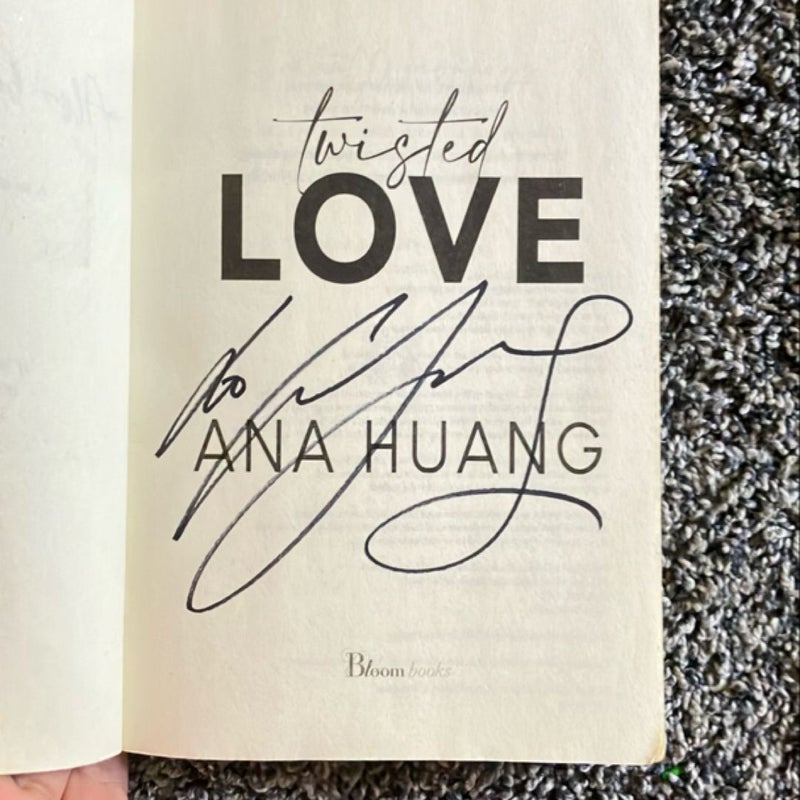 twisted
LOVE
xo
ANA HUANG
Bloom books